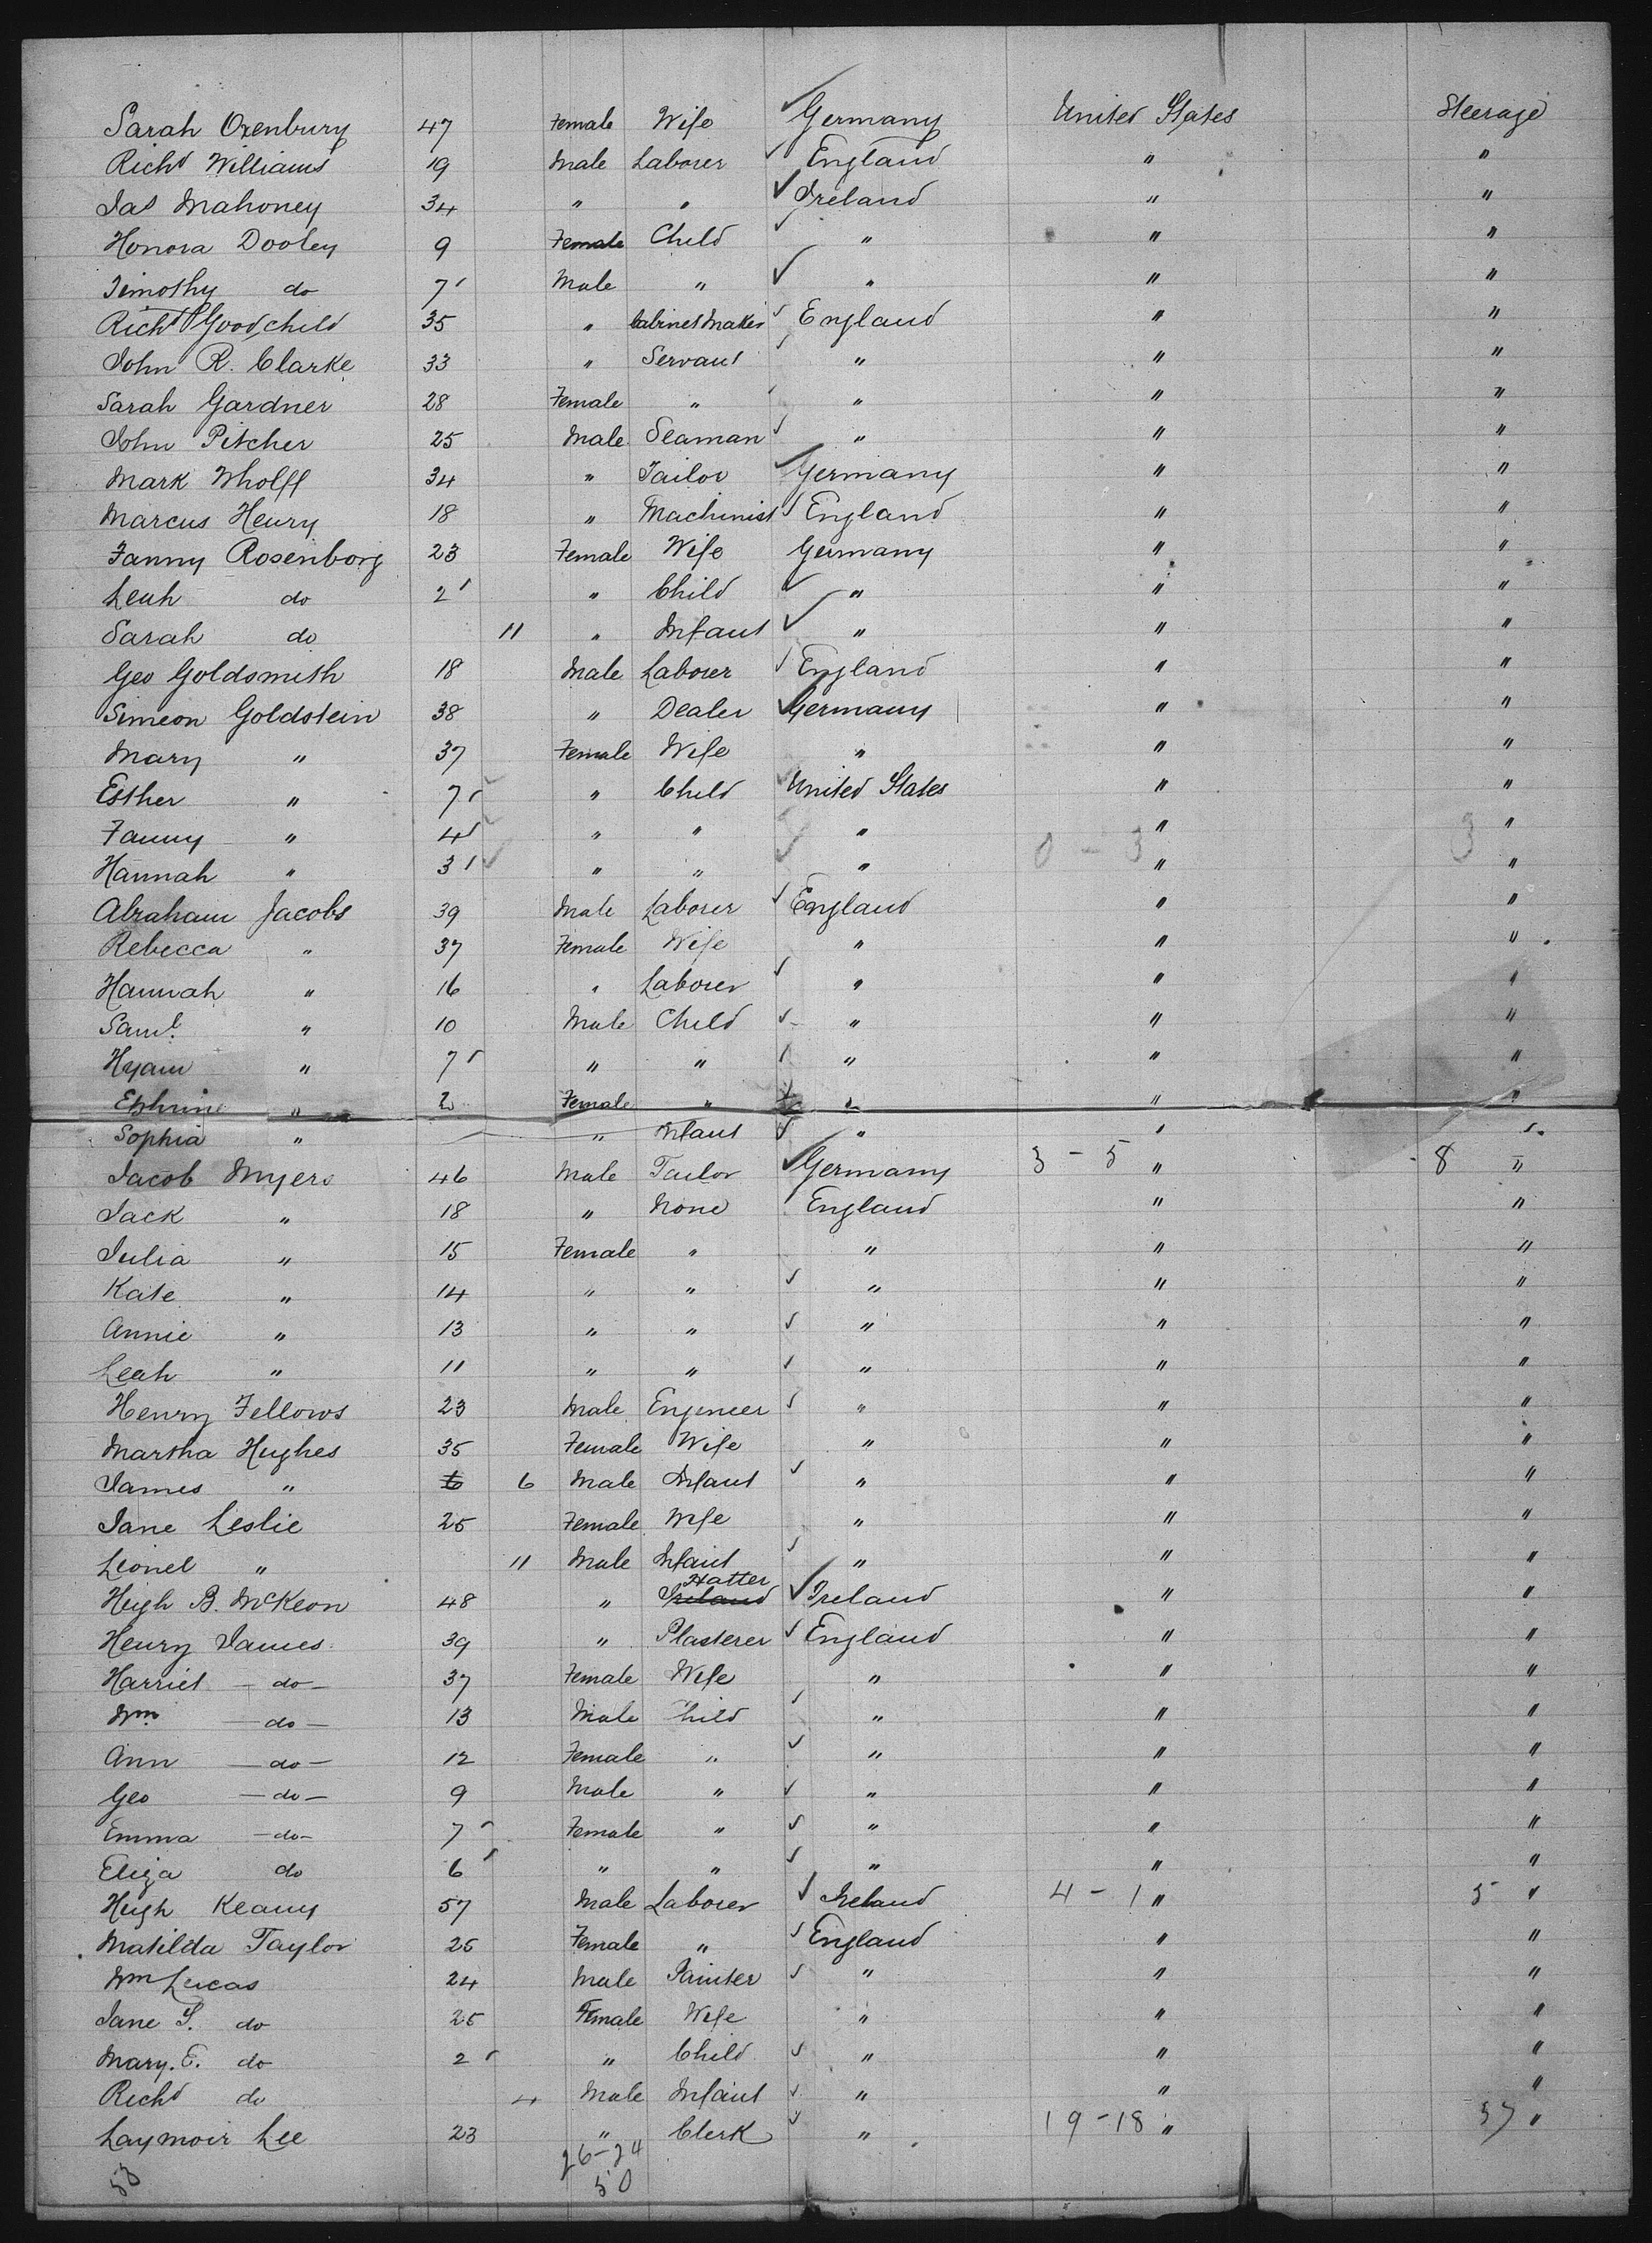 Sarah Oxenbury 47 Female Wife Germany United States Steerage
Richd Williams 19 Male Laborer England " "
Jas Mahoney 34 " " Ireland " "
Honora Dooley 9 Female Child " " "
Timothy do 7 Male " " " "
Richd Goodchild 35 " Cabinet Maker England " "
John R. Clarke 33 " Servant " " "
Sarah Gardner 28 Female " " " "
John Pitcher 25 Male Seaman " " "
Mark Wholff 34 " Tailor Germany " "
Marcus Henry 18 " Machinist England " "
Fanny Rosenborg 23 Female Wife Germany " "
Leah do 2 " Child " " "
Sarah do 11 " Infant " " "
Geo Goldsmith 18 Male Laborer England " "
Simeon Goldstein 38 " Dealer Germany " "
Mary " 37 Female Wife " " "
Esther " 7 " Child United States " "
Fanny " 4 " " " " "
Hannah " 3 " " " 0 - 3 " 3 "
Abraham Jacobs 39 Male Laborer England " "
Rebecca " 37 Female Wife " " "
Hannah " 16 " Laborer " " "
Saml. " 10 Male Child " " "
Hyam " 7 " " " " "
Ephrine " 2 Female " " " "
Sophia " " Infant " " "
Jacob Myers 46 Male Tailor Germany 3 - 5 " 8 "
Jack " 18 " None England " "
Julia " 15 Female " " " "
Kate " 14 " " " " "
Annie " 13 " " " " "
Leah " 11 " " " " "
Henry Fellows 23 Male Engineer " " "
Martha Hughes 35 Female Wife " " "
James " 6 6 Male Infant " " "
Jane Leslie 25 Female Wife " " "
Lionel " 11 Male Infant " " "
Hatter
Hugh B. McKeon 48 " Ireland Ireland " "
Henry James 39 " Plasterer England " "
Harriet - do - 37 Female Wife " " "
Wm - do - 13 Male Child " " "
Ann - do - 12 Female " " " "
Geo - do - 9 Male " " " "
Emma - do - 7 Female " " " "
Eliza do 6 " " " " "
Hugh Keany 57 Male Laborer Ireland 4 - 1 " 5 "
Matilda Taylor 25 Female " England " "
Wm Lucas 24 Male Painter " " "
Jane S. do 25 Female Wife " " "
Mary. E. do 2 " Child " " "
Richd do 4 Male Infant " " "
Laymoir Lee 23 " Clerk " 19 - 18 " 37 "
26 - 24
53 50